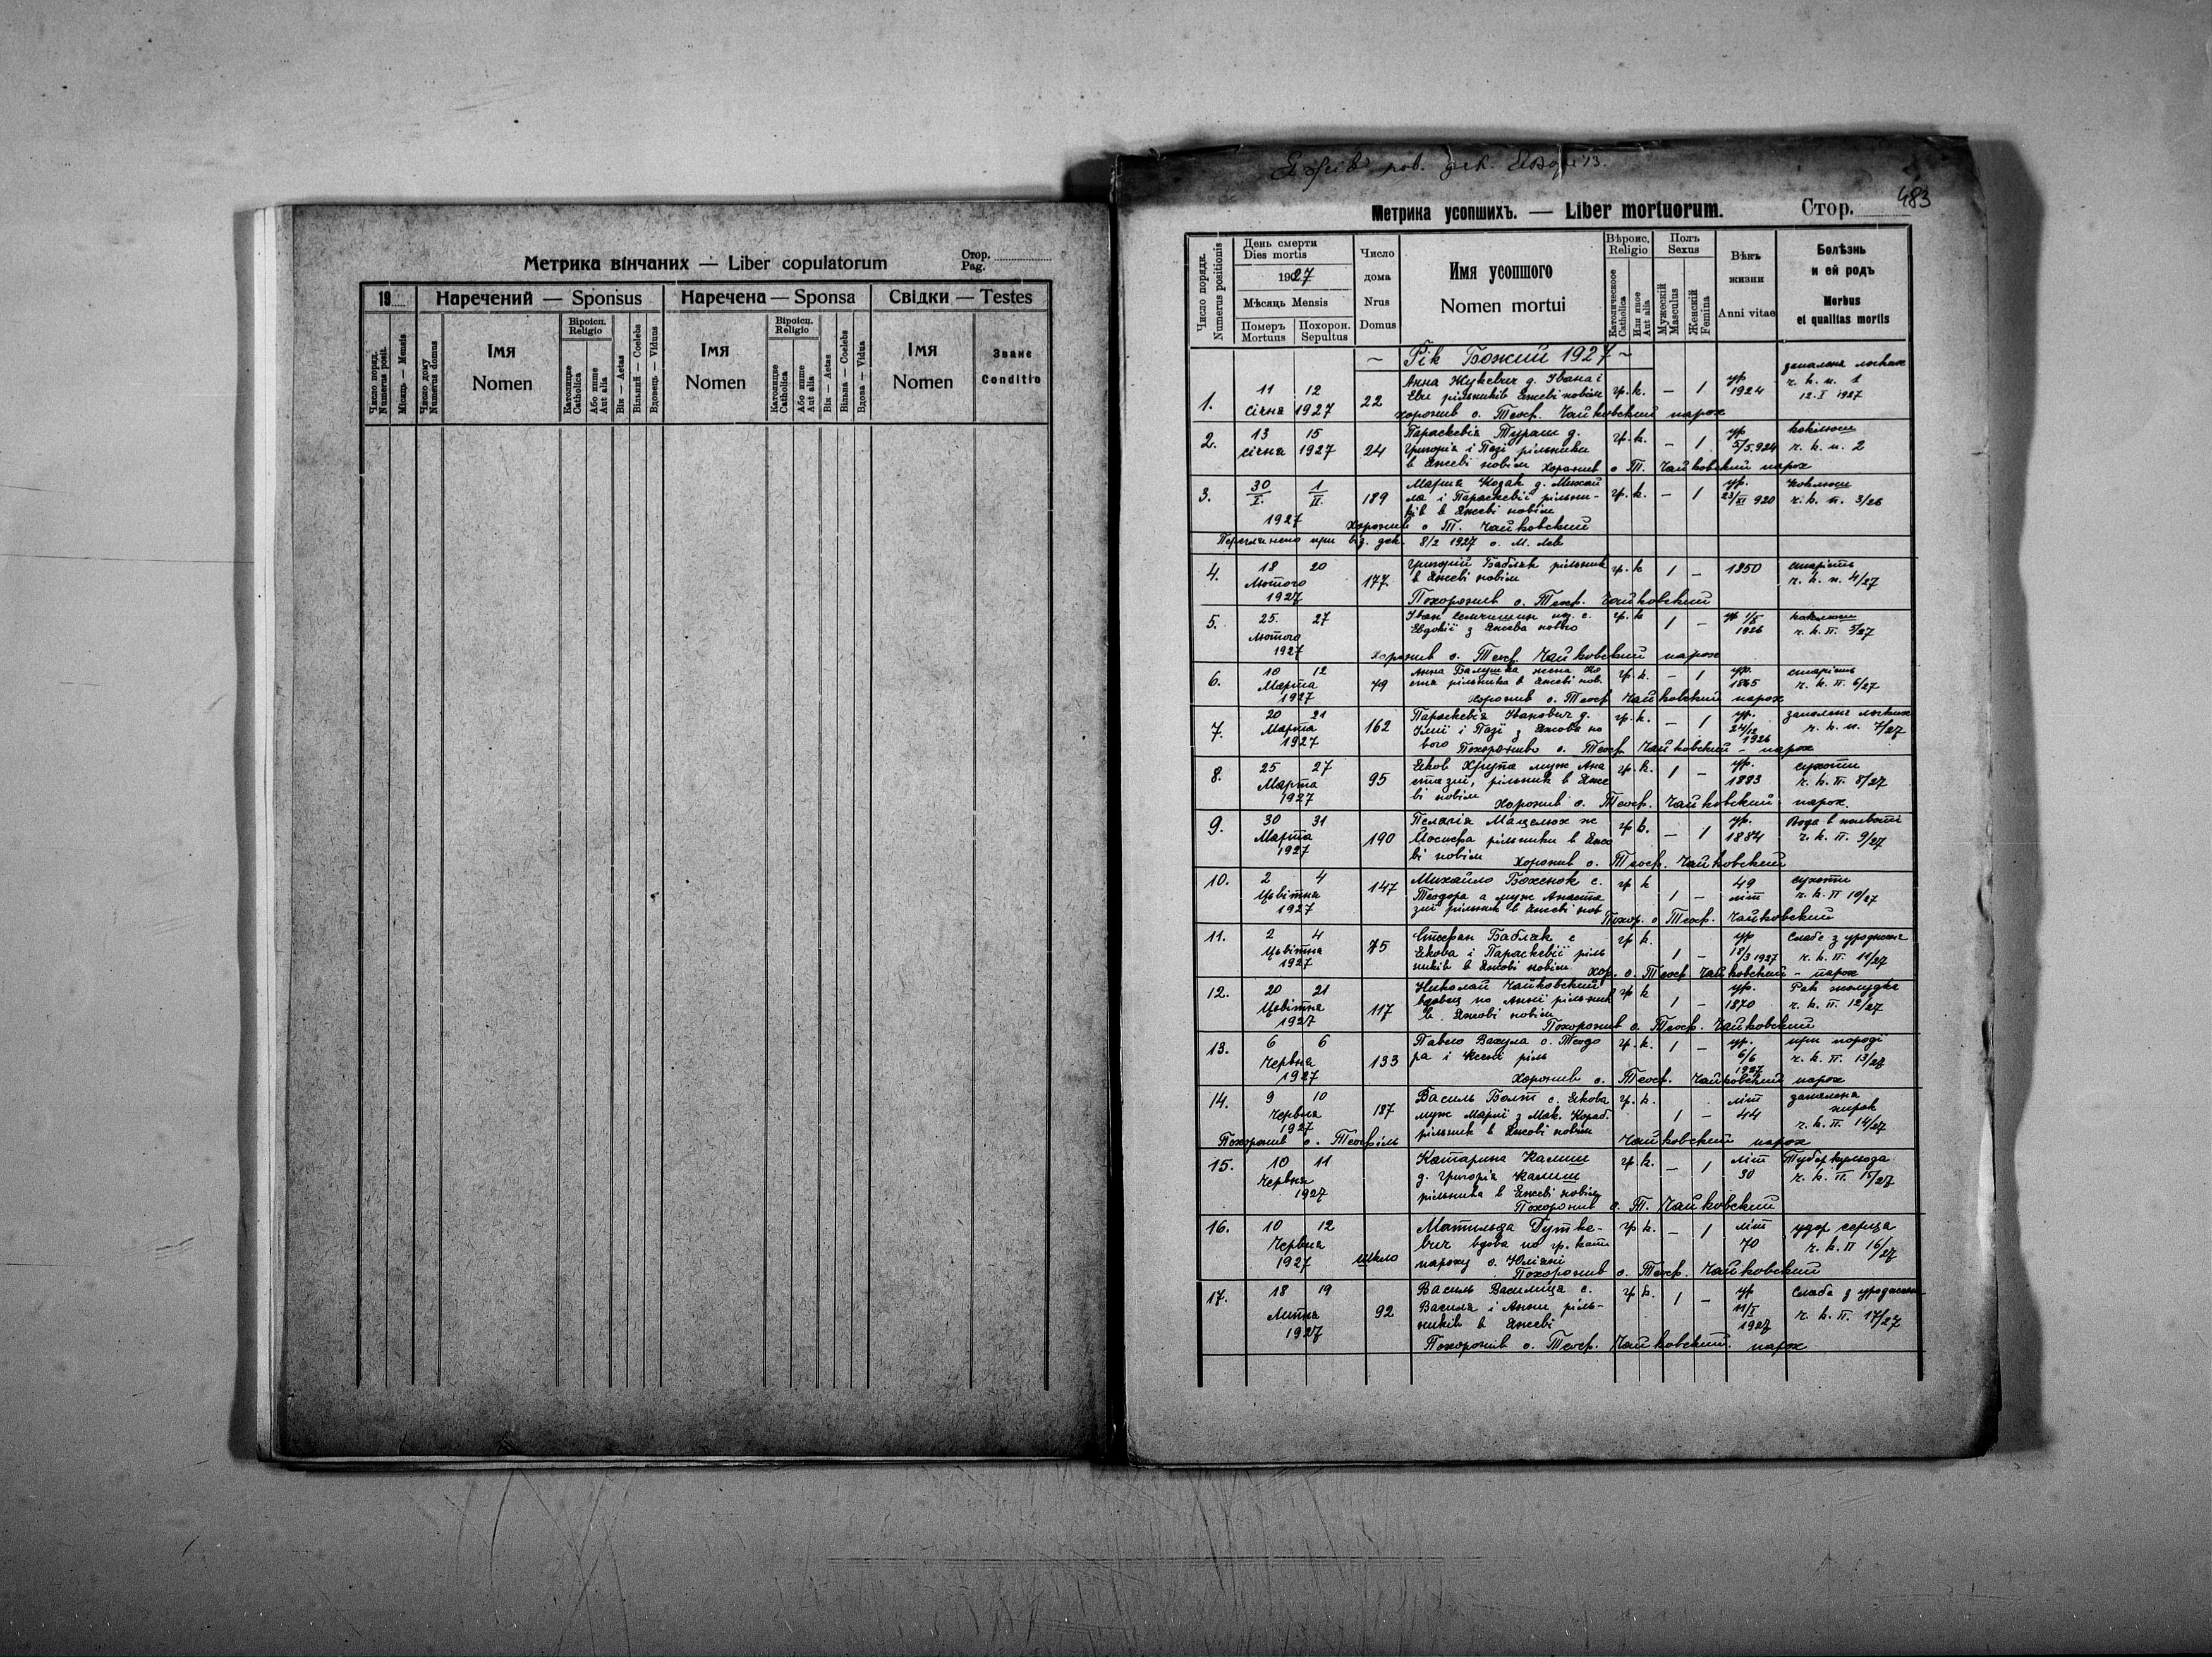 Метрика вінчаних — Liber copulatorum
Стор.
Pag.
19
Наречений — Sponsus
Наречена — Sponsa
Свідки — Testes
Число поряд.
Numerus posit.
Місяць — Mensis
Число дому
Numerus domus
Імя
Nomen
Віроісп.
Religio
Католицке
Catholica
Або инше
Aut alia
Вік — Aetas
Вільний — Coelebs
Вдовець — Viduus
Імя
Nomen
Віроісп.
Religio
Католицке
Catholica
Або инше
Aut alia
Вік — Aetas
Вільна — Coelebs
Вдова — Vidua
Імя
Nomen
Званє
Conditio
483
Метрика усопшихъ. — Liber mortuorum.
Стор.
Число порядк.
Numerus positionis
День смерти
Dies mortis
1927
Мѣсяць Mensis
Померъ
Mortuus
Похорон.
Sepultus
Число
дома
Nrus
Domus
Имя усопшого
Nomen mortui
Вѣроис.
Religio
Католическое
Catholica
Или иное
Aut alia
Полъ
Sexus
Мужескій
Masculus
Женскій
Femina
Вѣкъ
жизни
Anni vitae
Болѣзнь
и ей родъ
Morbus
et qualitas mortis
~ Рік Божий 1927 ~
1.
11 12
січня 1927
22
Анна Жукевич д. Івана і
Еви рільників Яжеві новім
гр. к. – 1
ур
1924
запаленє легких
ч. к. п. 1
12.I 1927
хоронив о. Теоф. Чайковский парох
2.
13 15
січня 1927
24
Параскевія Тураш д.
Григорія і Пазі рільники
в Яжеві новім Хоронив о Т. Чайковский парох
гр. к. – 1
ур
5/5.924
коклюш
ч. к. п. 2
3.
30/I. 1/II.
1927
189
Мария Козак д. Михай
ла і Параскевії рільни-
ків в Яжеві новім
гр. к. – 1
ур.
23/XI 920
коклюш
ч. к. п. 3/26
Хоронив о Т. Чайковский
Переглянено при віз. дек. 8/2 1927 о. М. Лев
4.
18 20
Лютого
1927
177
Григорій Бабляк рільник
в Яжеві новім
гр. к 1 –
1850
старість
ч. к. п. 4/27
Похоронив о. Теоф. Чайковский
5.
25 27
Лютого
1927
Іван Семчишин нз. с.
Евдокії з Яжева нового
гр. к 1 –
1926
коклюш
ч. к. п. 5/27
Хоронив о. Теоф. Чайковский парох
6.
10 12
Марта
1927
79
гр. к. – 1
ур.
1865
старість
ч. к. п. 6/27
Хоронив о. Теоф Чайковский парох
7.
20 21
Марта
1927
162
Параскевія Іванович д.
Ілиї і Пазї з Яжова но
вого Похоронив о. Теоф Чайковский – парох
гр. к. – 1
ур.
24/12
1926
запаленє легких
ч. к. п. 7/27
8.
25 27
Марта
1927
95
Яков Хрупа муж Ана
стазиї, рільник в Яже
ві новім Хоронив о. Теоф. Чайковский парох.
гр. к. 1 –
ур.
1883
сухоти
ч. к. п. 8/27
9.
30 31
Марта
1927
190
Пелагія Мацелюх ж
Йосифа рільники в Яжо
ві новім Хоронив о. Теоф. Чайковский
гр к. – 1
ур.
1884
Вода в животі
ч. к. п. 9/27
10.
2 4
Цьвітня
1927
147
Михайло Боженок с.
Теодора а муж Анаста
зиї рільник в Яжеві нов
гр к 1 –
49
літ
сухоти
ч. к. п 10/27
Похор. о Теоф. Чайковский
11.
2 4
Цьвітня
1927
75
Стефан Бабляк с
Якова і Параскевії ріль
ників в Яжові новім Хор. о. Теоф Чайковский – парох
гр к. 1 –
ур
18/3 1927
ч. к. п. 11/27
12.
20 21
Цьвітня
1927
117
Николай Чайковский
вдовец по Анні рільник
в Яжові новім
гр к 1 –
ур.
1870
Рак жолудка
ч. к. п. 12/27
Похоронив о. Теоф. Чайковский
13.
6 6
Червня
1927
133
Павло Вахула с. Теодо
гр. к. 1 –
ур.
6/6
1927
при породі
ч. к. п. 13/27
Хоронив о. Теоф. Чайковский парох
14.
9 10
Червня
1927
187
Василь Болт с. Якова
муж Марії з Мак. Кораб.
рільник в Яжові новім
гр. к. 1 –
літ
44
запаленя
нирок
ч. к. п. 14/27
Похоронив о. Теофіль Чайковский парох
15.
10 11
Червня
1927
Катарина Калиш
д. Григорія Калиш
рільника в Яжеві новім
гр. к. – 1
літ
30
Туберкульоза
ч. к. п. 15/27
Похоронив о. Т. Чайковский
16.
10 12
Червня
1927
Шкло
Матильда Гутке-
вич вдова по гр. кат
пароху о. Юліяні
гр к. – 1
літ
70
удар серця
ч. к. п 16/27
Похоронив о. Теоф. Чайковский
17.
18 19
Липня
1927
92
Василь Василица с.
Василя і Анни ріль-
ників в Яжеві
гр к. 1 –
ур
11/I
1927
ч. к. п. 17/27
Похоронив о. Теоф. Чайковский. парох